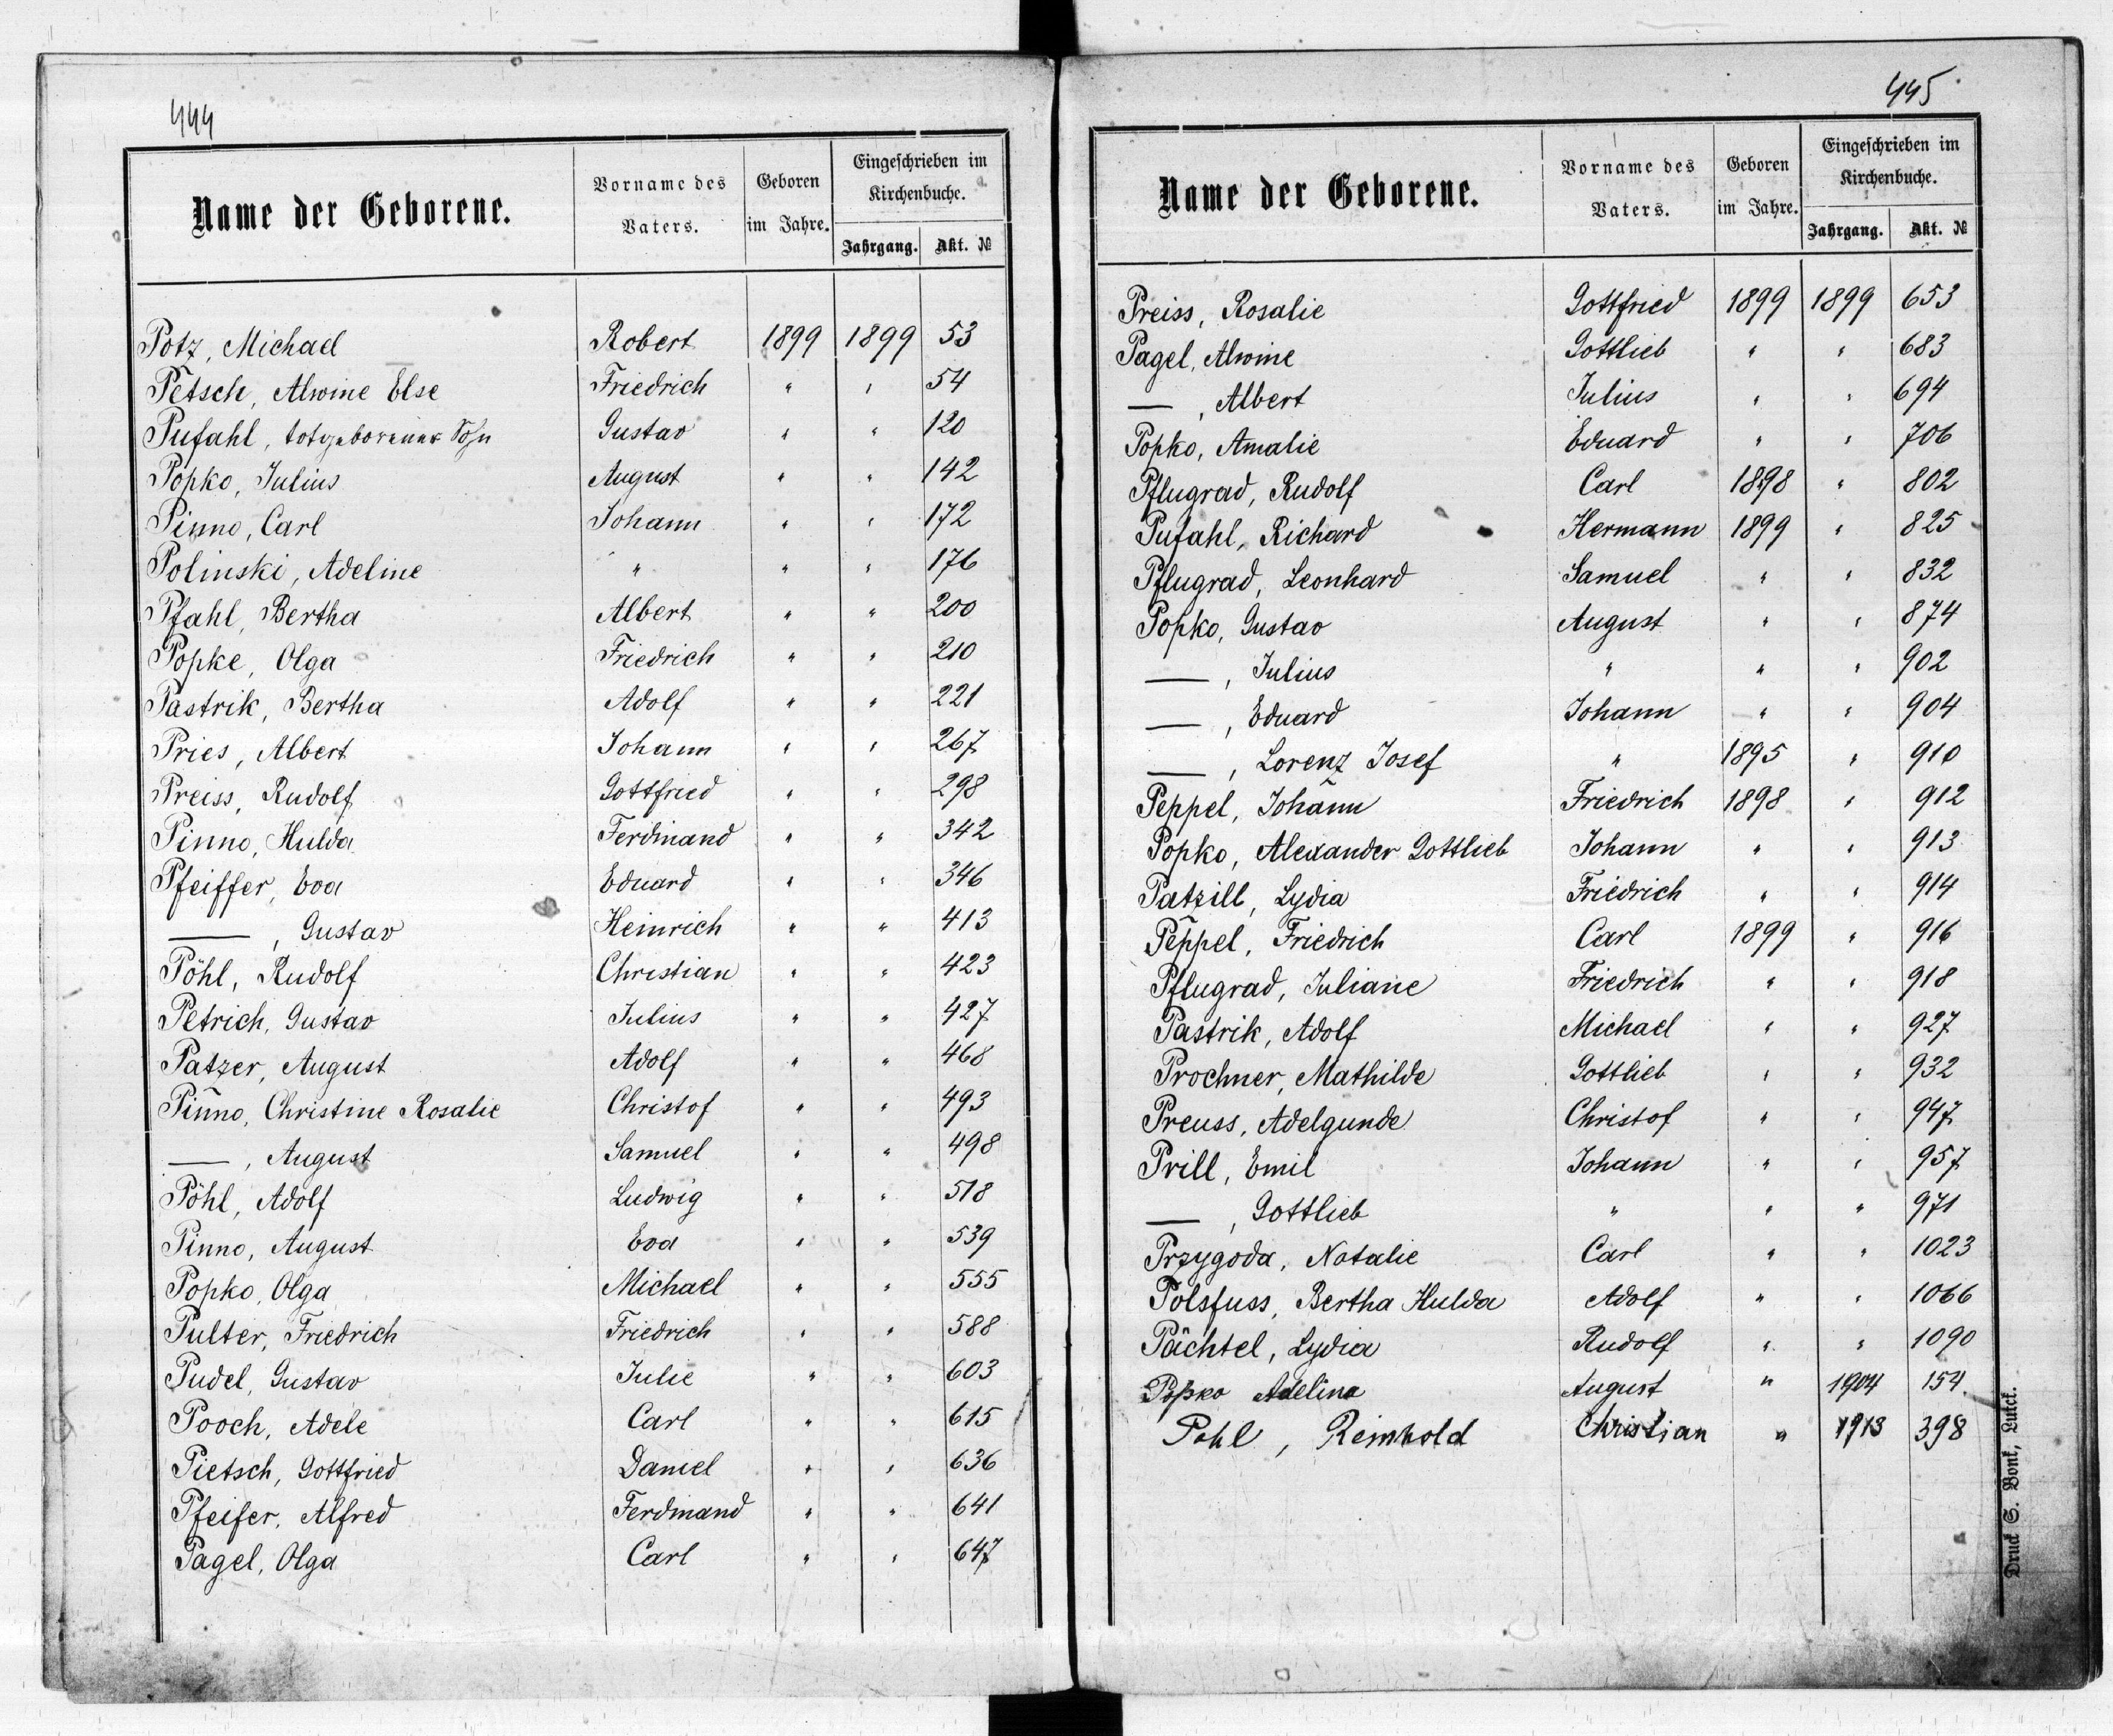 444
Name der Geborene. Vorname des Vaters. Geboren im Jahre. Eingeschrieben im Kirchenbuche. Jahrgang. Akt. №
Potz, Michael Robert 1899 1899 53
Petsch, Alwine Else Friedrich " " 54
Pufahl, totgeborener Sohn Gustav " " 120
Popko, Julius August " " 142
Pinno, Carl Johann " " 172
Polinski, Adeline " " " 176
Pfahl, Bertha Albert " " 200
Popke, Olga Friedrich " " 210
Pastrik, Bertha Adolf " " 221
Pries, Albert Johann " " 267
Preiss, Rudolf Gottfried " " 298
Pinno, Hulda Ferdinand " " 342
Pfeiffer, Eva Eduard " " 346
—, Gustav Heinrich " " 413
Pöhl, Rudolf Christian " " 423
Petrich, Gustav Julius " " 427
Patzer, August Adolf " " 468
Pinno, Christine Rosalie Christof " " 493
—, August Samuel " " 498
Pöhl, Adolf Ludwig " " 518
Pinno, August Eva " " 539
Popko, Olga Michael " " 555
Pulter, Friedrich Friedrich " " 588
Pudel, Gustav Julie " " 603
Pooch, Adele Carl " " 615
Pietsch, Gottfried Daniel " " 636
Pfeifer, Alfred Ferdinand " " 641
Pagel, Olga Carl " " 647
445
Name der Geborene. Vorname des Vaters. Geboren im Jahre. Eingeschrieben im Kirchenbuche. Jahrgang. Akt. №
Preiss, Rosalie Gottfried 1899 1899 653
Pagel, Alwine Gottlieb " " 683
—, Albert Julius " " 694
Popko, Amalie Eduard " " 706
Pflugrad, Rudolf Carl 1898 " 802
Pufahl, Richard Hermann 1899 " 825
Pflugrad, Leonhard Samuel " " 832
Popko, Gustav August " " 874
—, Julius " " " 902
—, Eduard Johann " " 904
—, Lorenz Josef " 1895 " 910
Peppel, Johann Friedrich 1898 " 912
Popko, Alexander Gottlieb Johann " " 913
Patzill, Lydia Friedrich " " 914
Peppel, Friedrich Carl 1899 " 916
Pflugrad, Juliane Friedrich " " 918
Pastrik, Adolf Michael " " 927
Prochner, Mathilde Gottlieb " " 932
Preuss, Adelgunde Christof " " 947
Prill, Emil Johann " " 957
—, Gottlieb " " " 971
Przygoda, Natalie Carl " " 1023
Polsfuss, Bertha Hulda Adolf " " 1066
Pächtel, Lydia Rudolf " " 1090
Popko Adelina August " 1904 154
Pohl, Reinhold Christian " 1913 398
Druck S. Bonk, Luck.